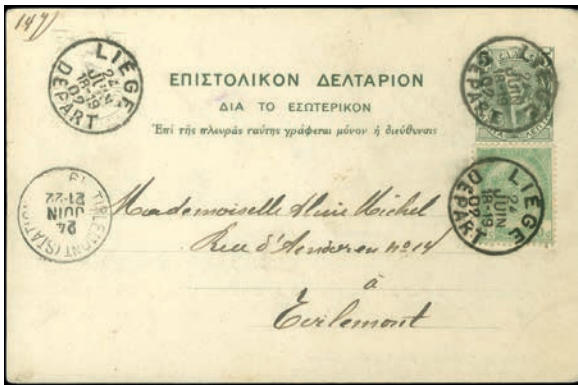 147
LIEGE
24
JUIN
18-19
02
DEPART
ΕΠΙΣΤΟΛΙΚΟΝ ΔΕΛΤΑΡΙΟΝ
ΔΙΑ ΤΟ ΕΣΩΤΕΡΙΚΟΝ
Ἐπὶ τῆς πλευρᾶς ταύτης γράφεται μόνον ἡ διεύθυνσις
LIEGE
24
JUIN
18-19
02
DEPART
LIEGE
24
JUIN
18-19
02
DEPART
TIRLEMONT (STATION)
24
JUIN
21-22
Mademoiselle Michel
Rue d' no 14
à
Tirlemont